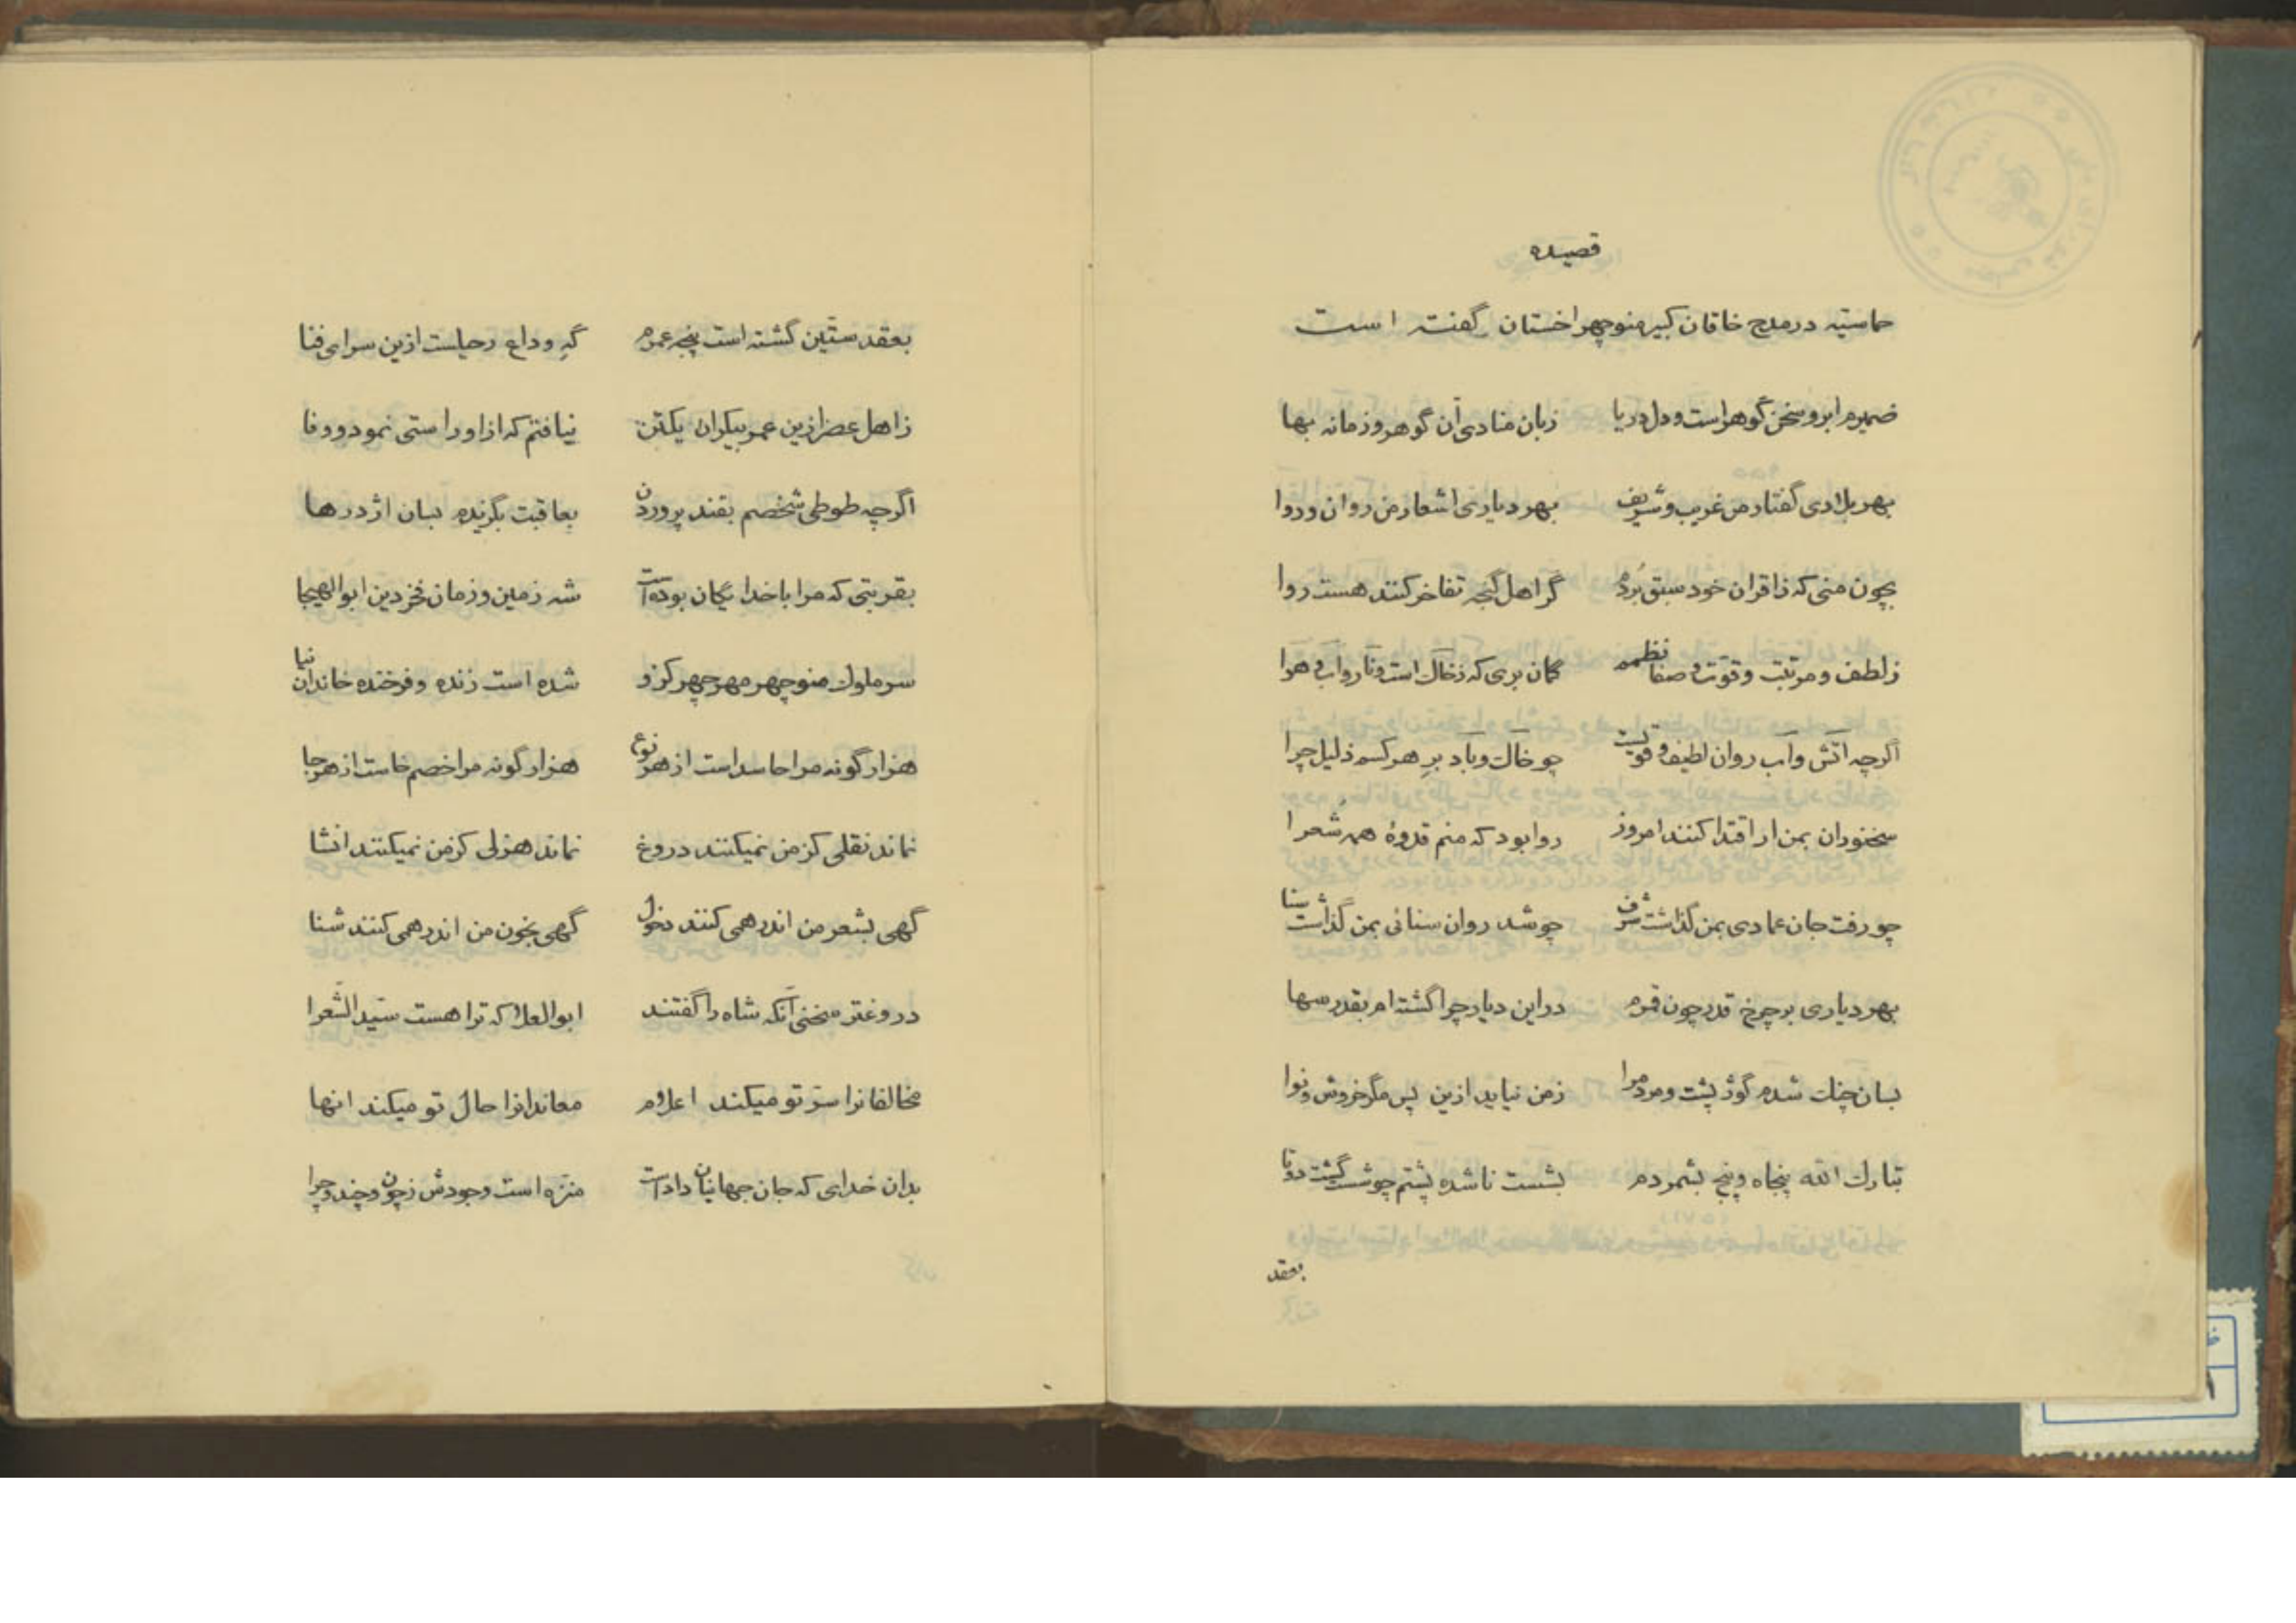 قصیده
حماسیه در مدح خاقان کبیر منوچهر اخستان گفته است
ضمیرم ابر و سخن گوهر است و دل دریا زبان منادی آن گوهر و زمانه بها
بهر بلادی گفتار من غریب و شریف بهر دیاری اشعار من روان و روا
بچون منی که ز اقران خود سبق بردم گر اهل گنجه تفاخر کنند هست روا
ز لطف و مرتبت و قوت و صفا نظمم گمان بری که ز خاک است و نار و آب و هوا
اگرچه آتش و آب روان لطیف و قویست چو خاک و باد بر هر کسم ذلیل چرا
سخنوران بمن ار اقتدا کنند امروز روا بود که منم قدوهٔ همه شعرا
چو رفت جان عمادی بمن گذاشت شرف چو شد روان سنائی بمن گذاشت سنا
بهر دیاری بر چرخ قدر چون قمرم در این دیار چرا گشته‌ام بقدر سها
بسان چنگ شدم گوژپشت و مرد مرا ز من نیاید ازین پس مگر خروش و نوا
تبارک الله پنجاه و پنج بشمردم بشست ناشده پشتم چو شست گشت دوتا
بعقد
بعقد ستّین گشته است پنجه عمرم گهِ وداع رحیلست ازین سرای فنا
ز اهل عصر ازین عمر بیکران یکتن نیافتم که ازاو راستی نمود و وفا
اگرچه طوطی شخصم بقند پروردن بعاقبت بگزیدم بسان اژدرها
بقربتی که مرا با خدایگان بوده است شه زمین و زمان فخر دین ابوالهیجا
سر ملوک منوچهر مهرچهر کزو شده است زنده و فرخنده خاندان نیا
هزار گونه مرا حاسد است از هر نوع هزار گونه مرا خصم خاست از هر جا
نماند نقلی کز من نمیکنند دروغ نماند هزلی کز من نمیکنند انشا
گهی بشعر من اندر همی کنند دخول گهی بخون من اندر همی کنند شنا
دروغتر سخنی آنکه شاه را گفتند ابوالعلا که ترا هست سیّد الشّعرا
مخالفانرا سرّ تو میکند اعلام معاندانرا حال تو میکند انها
بدان خدای که جان جهانیان داد است منزه است وجودش ز چون و چند و چرا